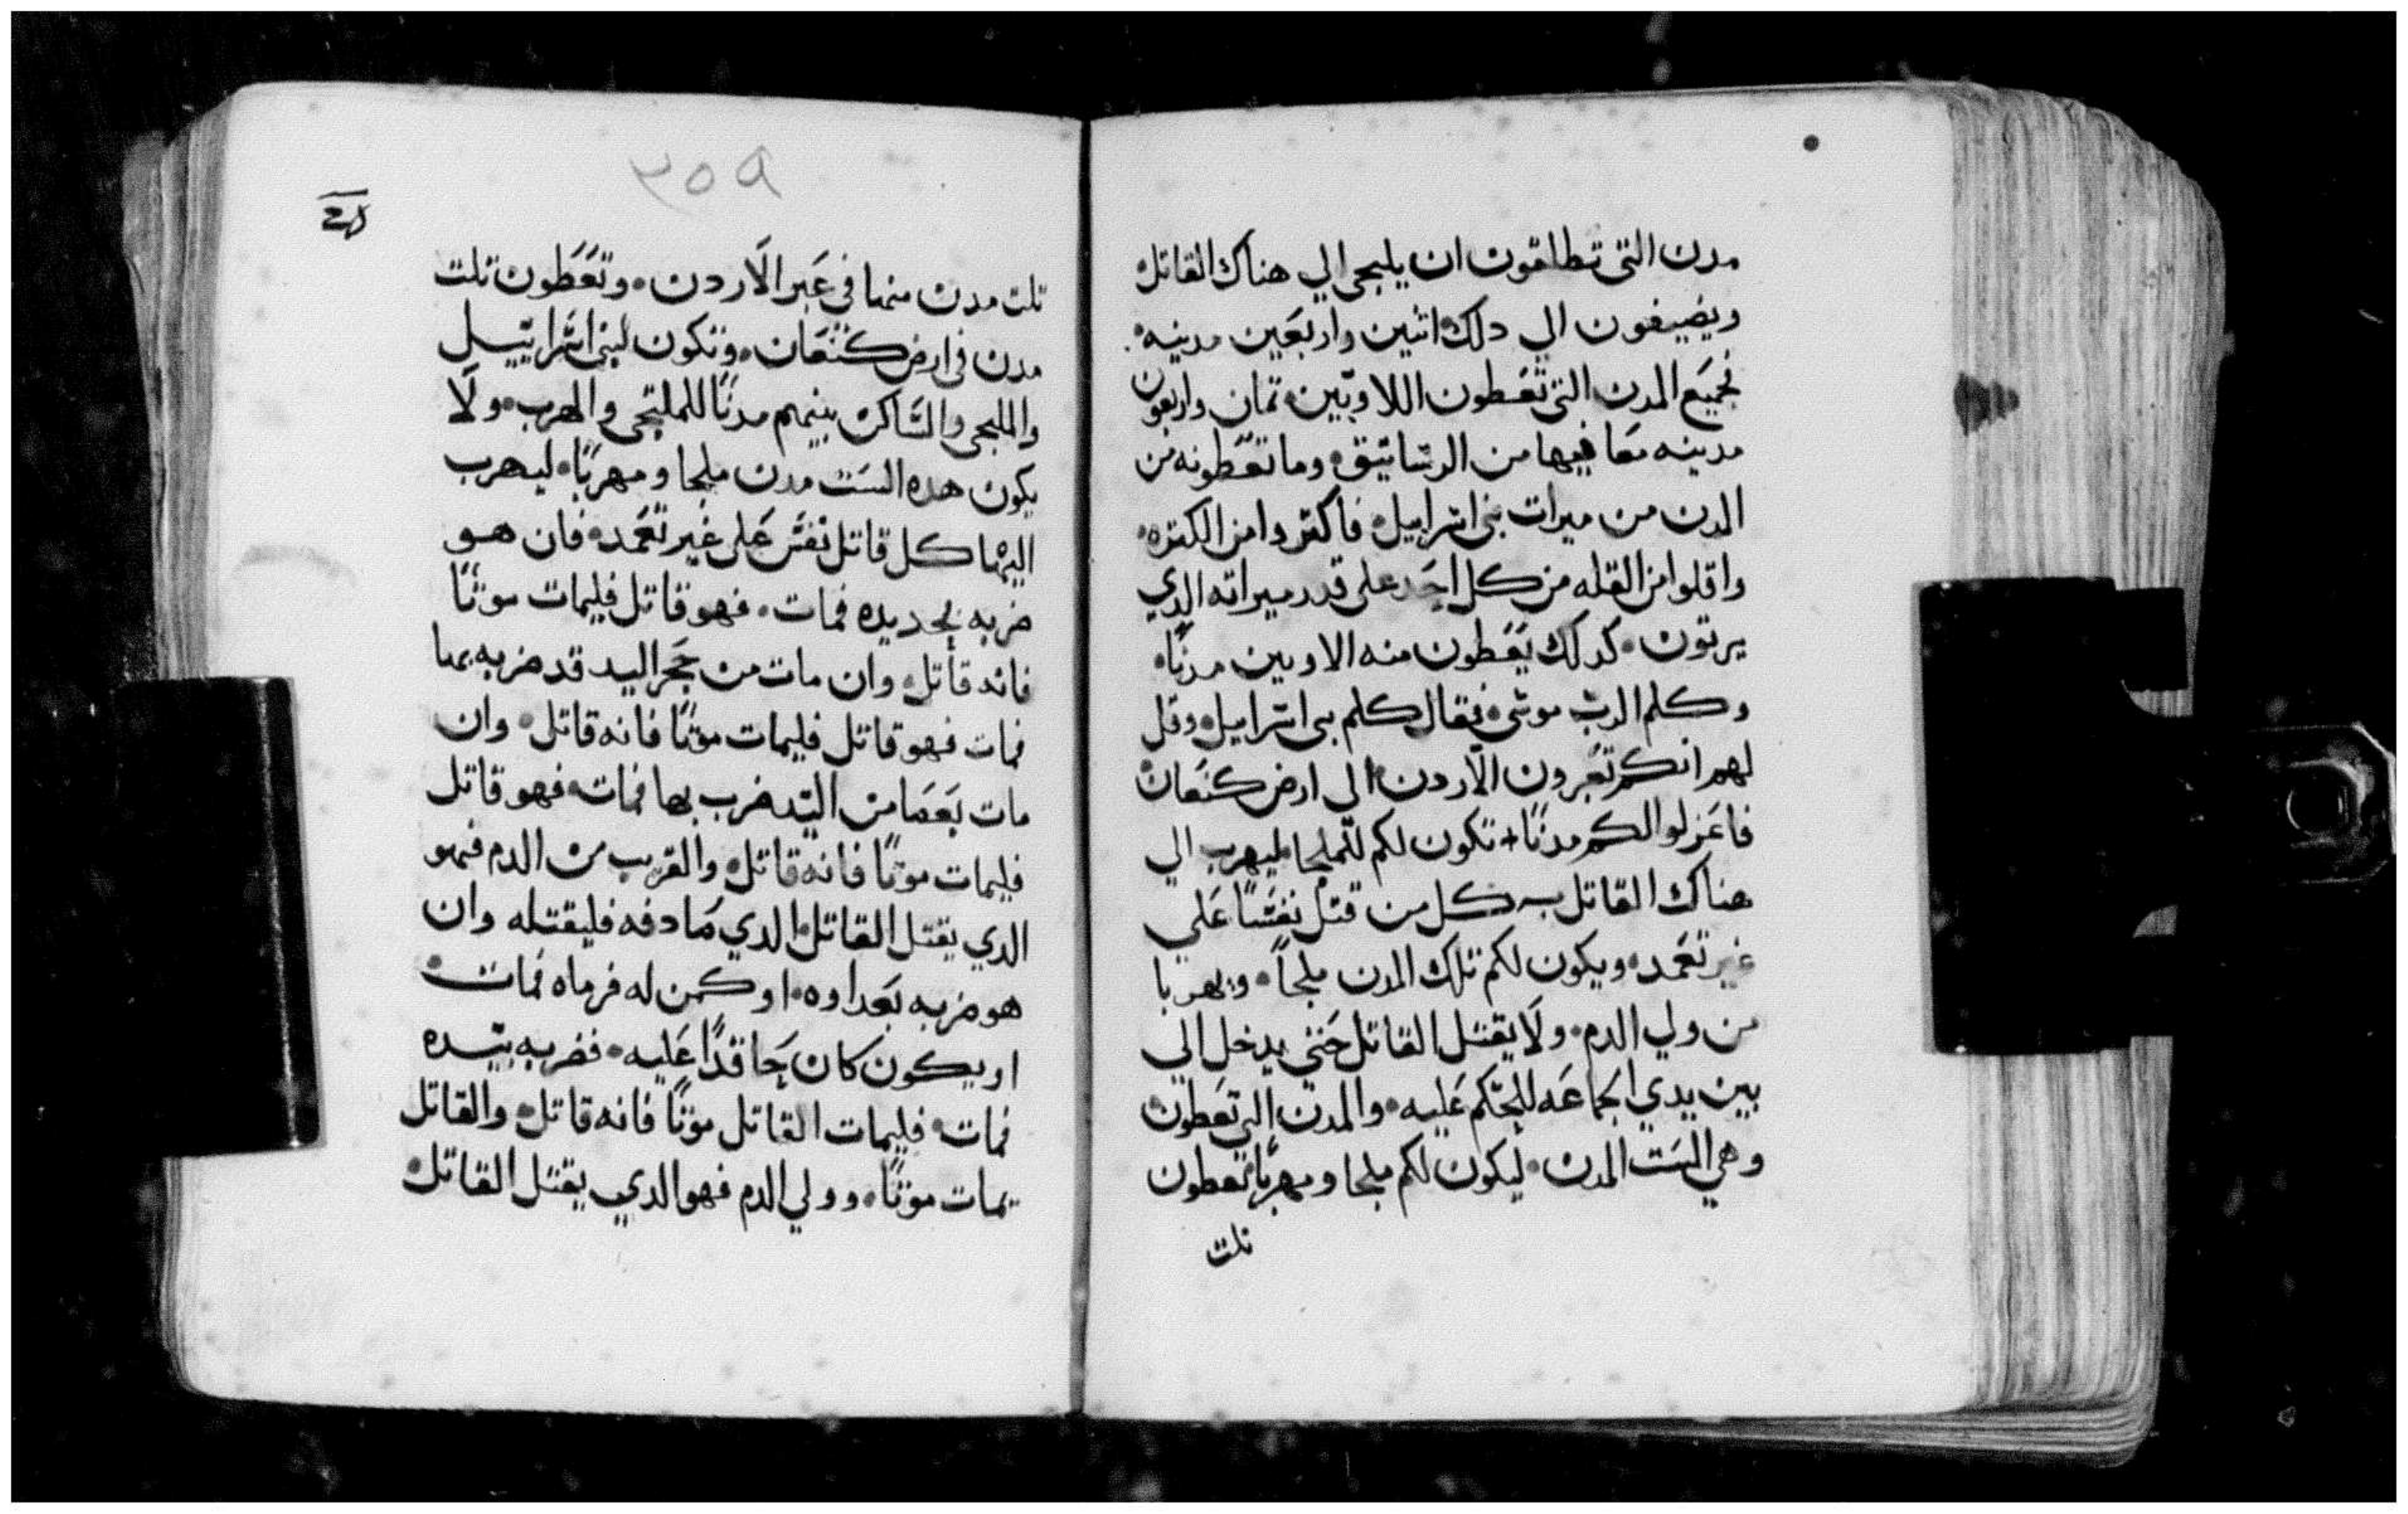 مدن التى تطلقون ان يلجى الي هناك القاتل
ويضيفون الي دلك اتنين واربعين مدينه
فجميع المدن التى تعطون اللاويين تمان واربعون
مدينه معا فيها من الرساتيق وما تعطونه من
المدن من ميرات بنى اسراييل فاكتروا من الكتره
واقلوا من القله من كل احد على قدر ميراته الدي
يرتون كدلك يعطون منه الاويين مدنًا
وكلم الرب موسى فقال كلم بنى اسراييل وقل
لهم انكم تعبرون الاردن الى ارض كنعان
فاعزلوا لكم مدنًا + تكون لكم للملجا ليهرب الي
هناك القاتل كل من قتل نفسًا علي
غير تعمد ويكون لكم تلك المدن ملجاً ومهربا
من ولي الدم ولا يقتل القاتل حتى يدخل الي
بين يدي الجماعه للحكم عليه والمدن التي تعطون
وهي الست المدن ليكون لكم ملجا ومهربًا تعطون
تلت
٢٥٩
تلت مدن منها في عبر الاردن وتعطون تلت
مدن فى ارض كنعان وتكون لبنى اسراييل
والملجى والساكن بينهم مدنًا للملتجى والمهرب ولا
يكون هده الست مدن ملجا ومهربًا ليهرب
اليها كل قاتل نفس على غير تعمد فان هو
ضربه بحديده فمات فهو قاتل فليمات موتًا
فانه قاتل وان مات من حجر اليد قد ضربه بها
فمات فهو قاتل فليمات موتًا فانه قاتل وان
مات بعصا من اليد ضرب بها فمات فهو قاتل
فليمات موتًا فانه قاتل والقريب من الدم فهو
الدي يقتل القاتل الدي صادفه فليقتله وان
هو ضربه بعداوه او كمن له فرماه فمات
او يكون كان حاقدًا عليه فضربه بيده
فمات فليمات القاتل موتًا فانه قاتل والقاتل
يمات موتًا وولي الدم فهو الدي يقتل القاتل